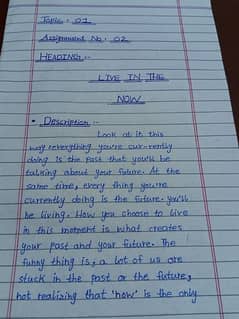 Topic : 01
Assignment No : 02
HEADING :-
LIVE IN THE
NOW
• Description :-
Look at it this
way everything you're cur-rently
doing is the past that you'll be
talking about your future. At the
same time, every thing you're
currently doing is the future. you'll
be living. How you choose to live
in this moment is what creates
your past and your future. The
funny thing is, a lot of us are
stuck in the past or the future,
not realizing that 'now' is the only